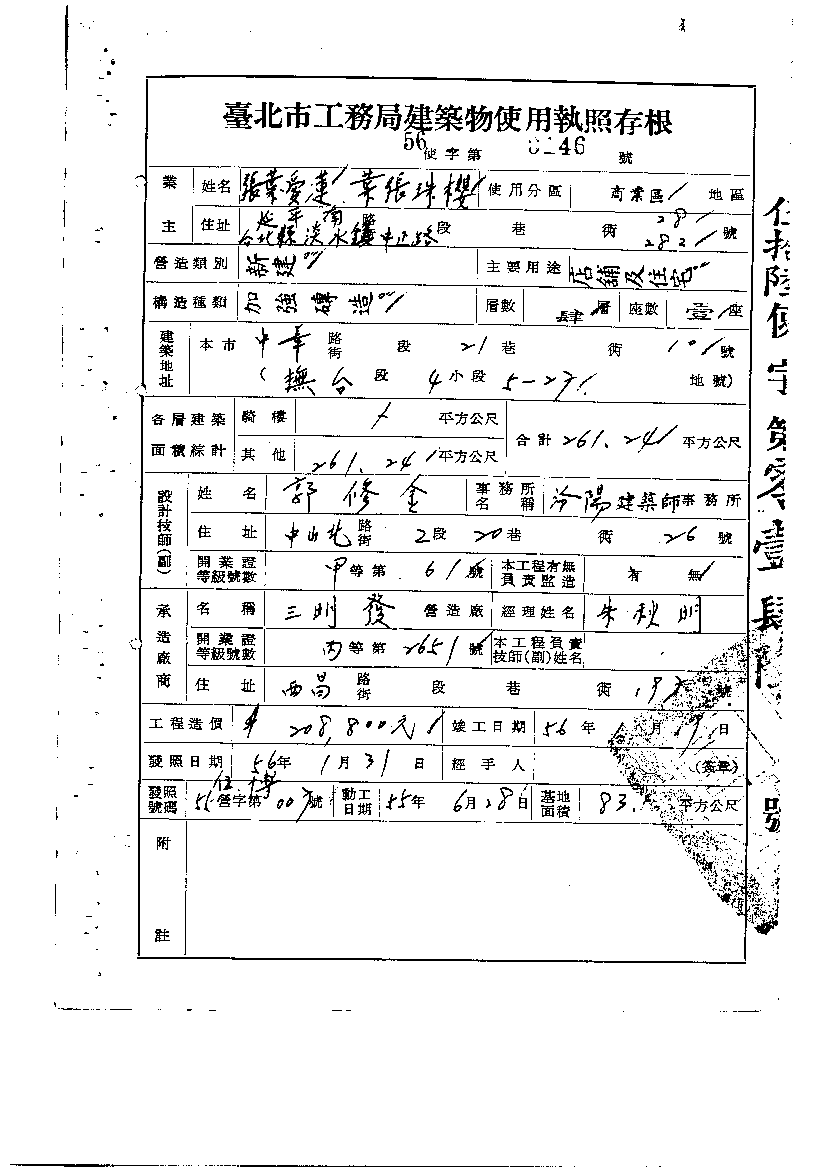 臺北市工務局建築物使用執照存根
56使字第 0146 號
業主 姓名 張葉愛蓮 葉張珠櫻 使用分區 商業區 地區
住址 延平南路 28
台北縣淡水鎮中正路 段 巷 街 282 號
營造類別 新建 主要用途 店舖及住宅
構造種類 加強磚造 層數 肆層 座數 壹座
建築地址 本市 中華 路街 段 21巷 街 10 號
(撫台段 4小段 5-27 地號)
各層建築面積綜計 騎樓 平方公尺 合計 261.24 平方公尺
其他 261.24 平方公尺
設計技師(副) 姓名 郭修金 事務所名稱 汾陽建築師事務所
住址 中山北 路街 2段 20巷 街 26 號
開業證等級號數 甲等第 616 號 本工程有無負責監造 有 無
承造廠商 名稱 三明發 營造廠 經理姓名 朱秋明
開業證等級號數 丙等第 2651 號 本工程負責技師(副)姓名
住址 西昌 路街 段 巷 街 號
工程造價 208,800元 竣工日期 56年 1月 19日
發照日期 56年 1月 31日 經手人 (簽章)
發照號碼 55營字第 號 動工日期 55年 6月 28日 基地面積 83. 平方公尺
附註
伍拾陸使字第零壹肆陸號